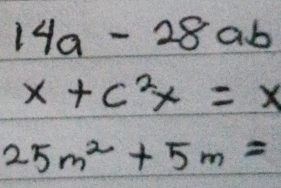 14a - 28ab
x + c²x = x
25m² + 5m =